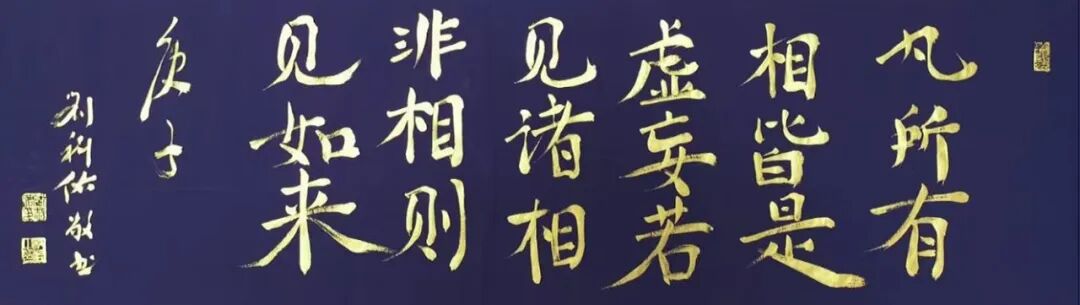 凡所有
相皆是
虚妄若
见诸相
非相则
见如来
庚子
刘科佑敬书